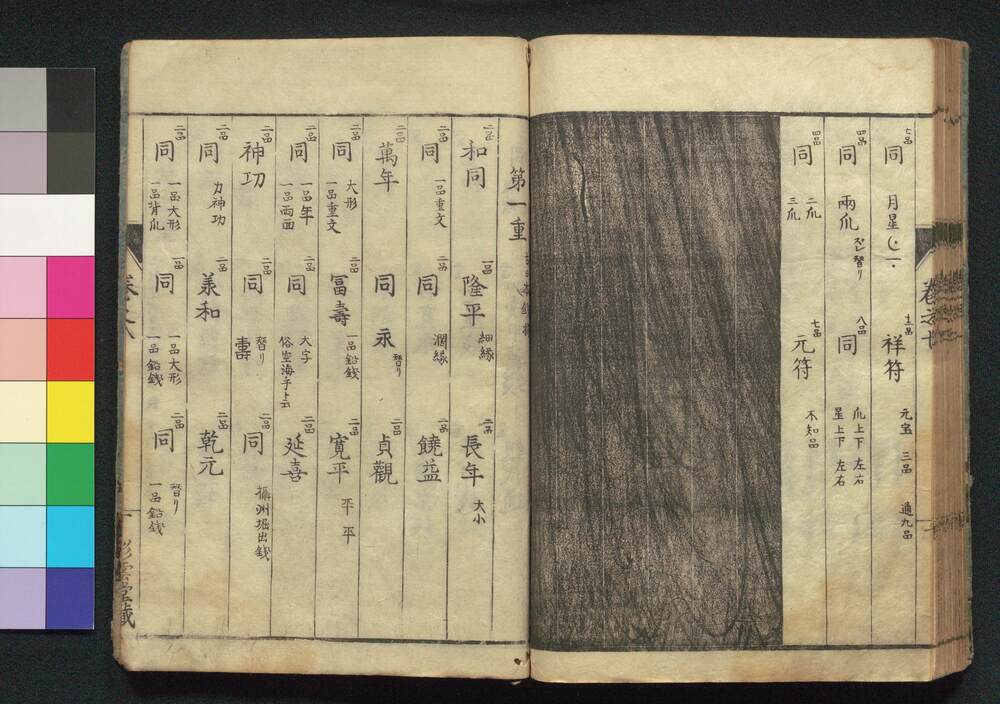 七品 同 月星 十一品 祥符 元宝 三品 通九品
四品 同 兩爪 替り 八品 同 爪上下左右 星上下左右
四品 同 二爪 三爪 七品 元符 不知品
卷之十
第一重
二品 和同 一品 隆平 細縁 二品 長年 大小
二品 同 一品重文 二品 同 濶縁 二品 饒益
二品 萬年 二品 同 永 替り 二品 貞觀
二品 同 大形 一品重文 二品 冨壽 一品鉛銭 二品 寛平 平 平
二品 同 一品年 一品両面 二品 同 大字 俗空海手ト云 二品 延喜
二品 神功 二品 同 替り 壽 二品 同 攝州堀出銭
二品 同 力神功 二品 羕和 二品 乾元
二品 同 一品大形 一品背爪 一品 同 一品大形 一品鉛銭 二品 同 替り 一品鉛銭
彩雲堂蔵